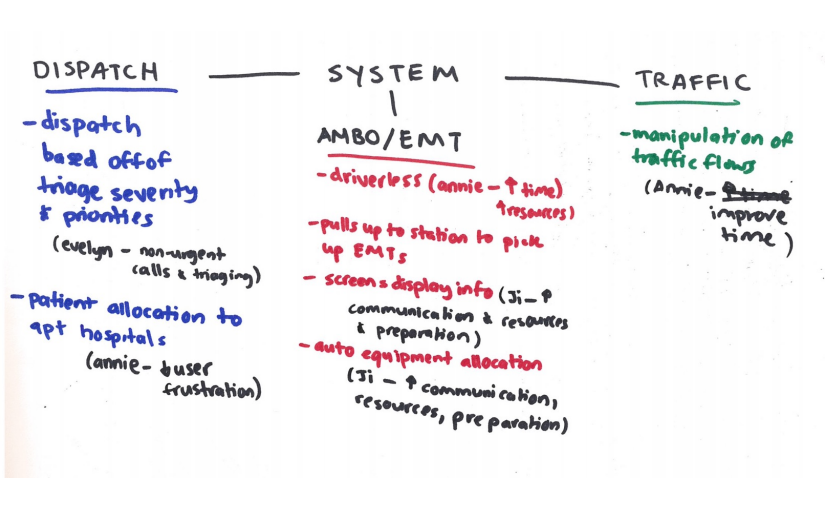 DISPATCH
SYSTEM
TRAFFIC
- dispatch
based off of
triage severity
& priorities
(evelyn - non-urgent
calls & triaging)
- patient allocation to
apt hospitals
(annie - ↓ user
frustration)
AMBO/EMT
- driverless (annie - ↑ time)
↑ resources)
- pulls up to station to pick
up EMTs
- screens display info (Ji - ↑
communication & resources
& preparation)
- auto equipment allocation
(Ji - ↑ communication,
resources, preparation)
- manipulation of
traffic flows
(Annie - ↑ time
improve
time)